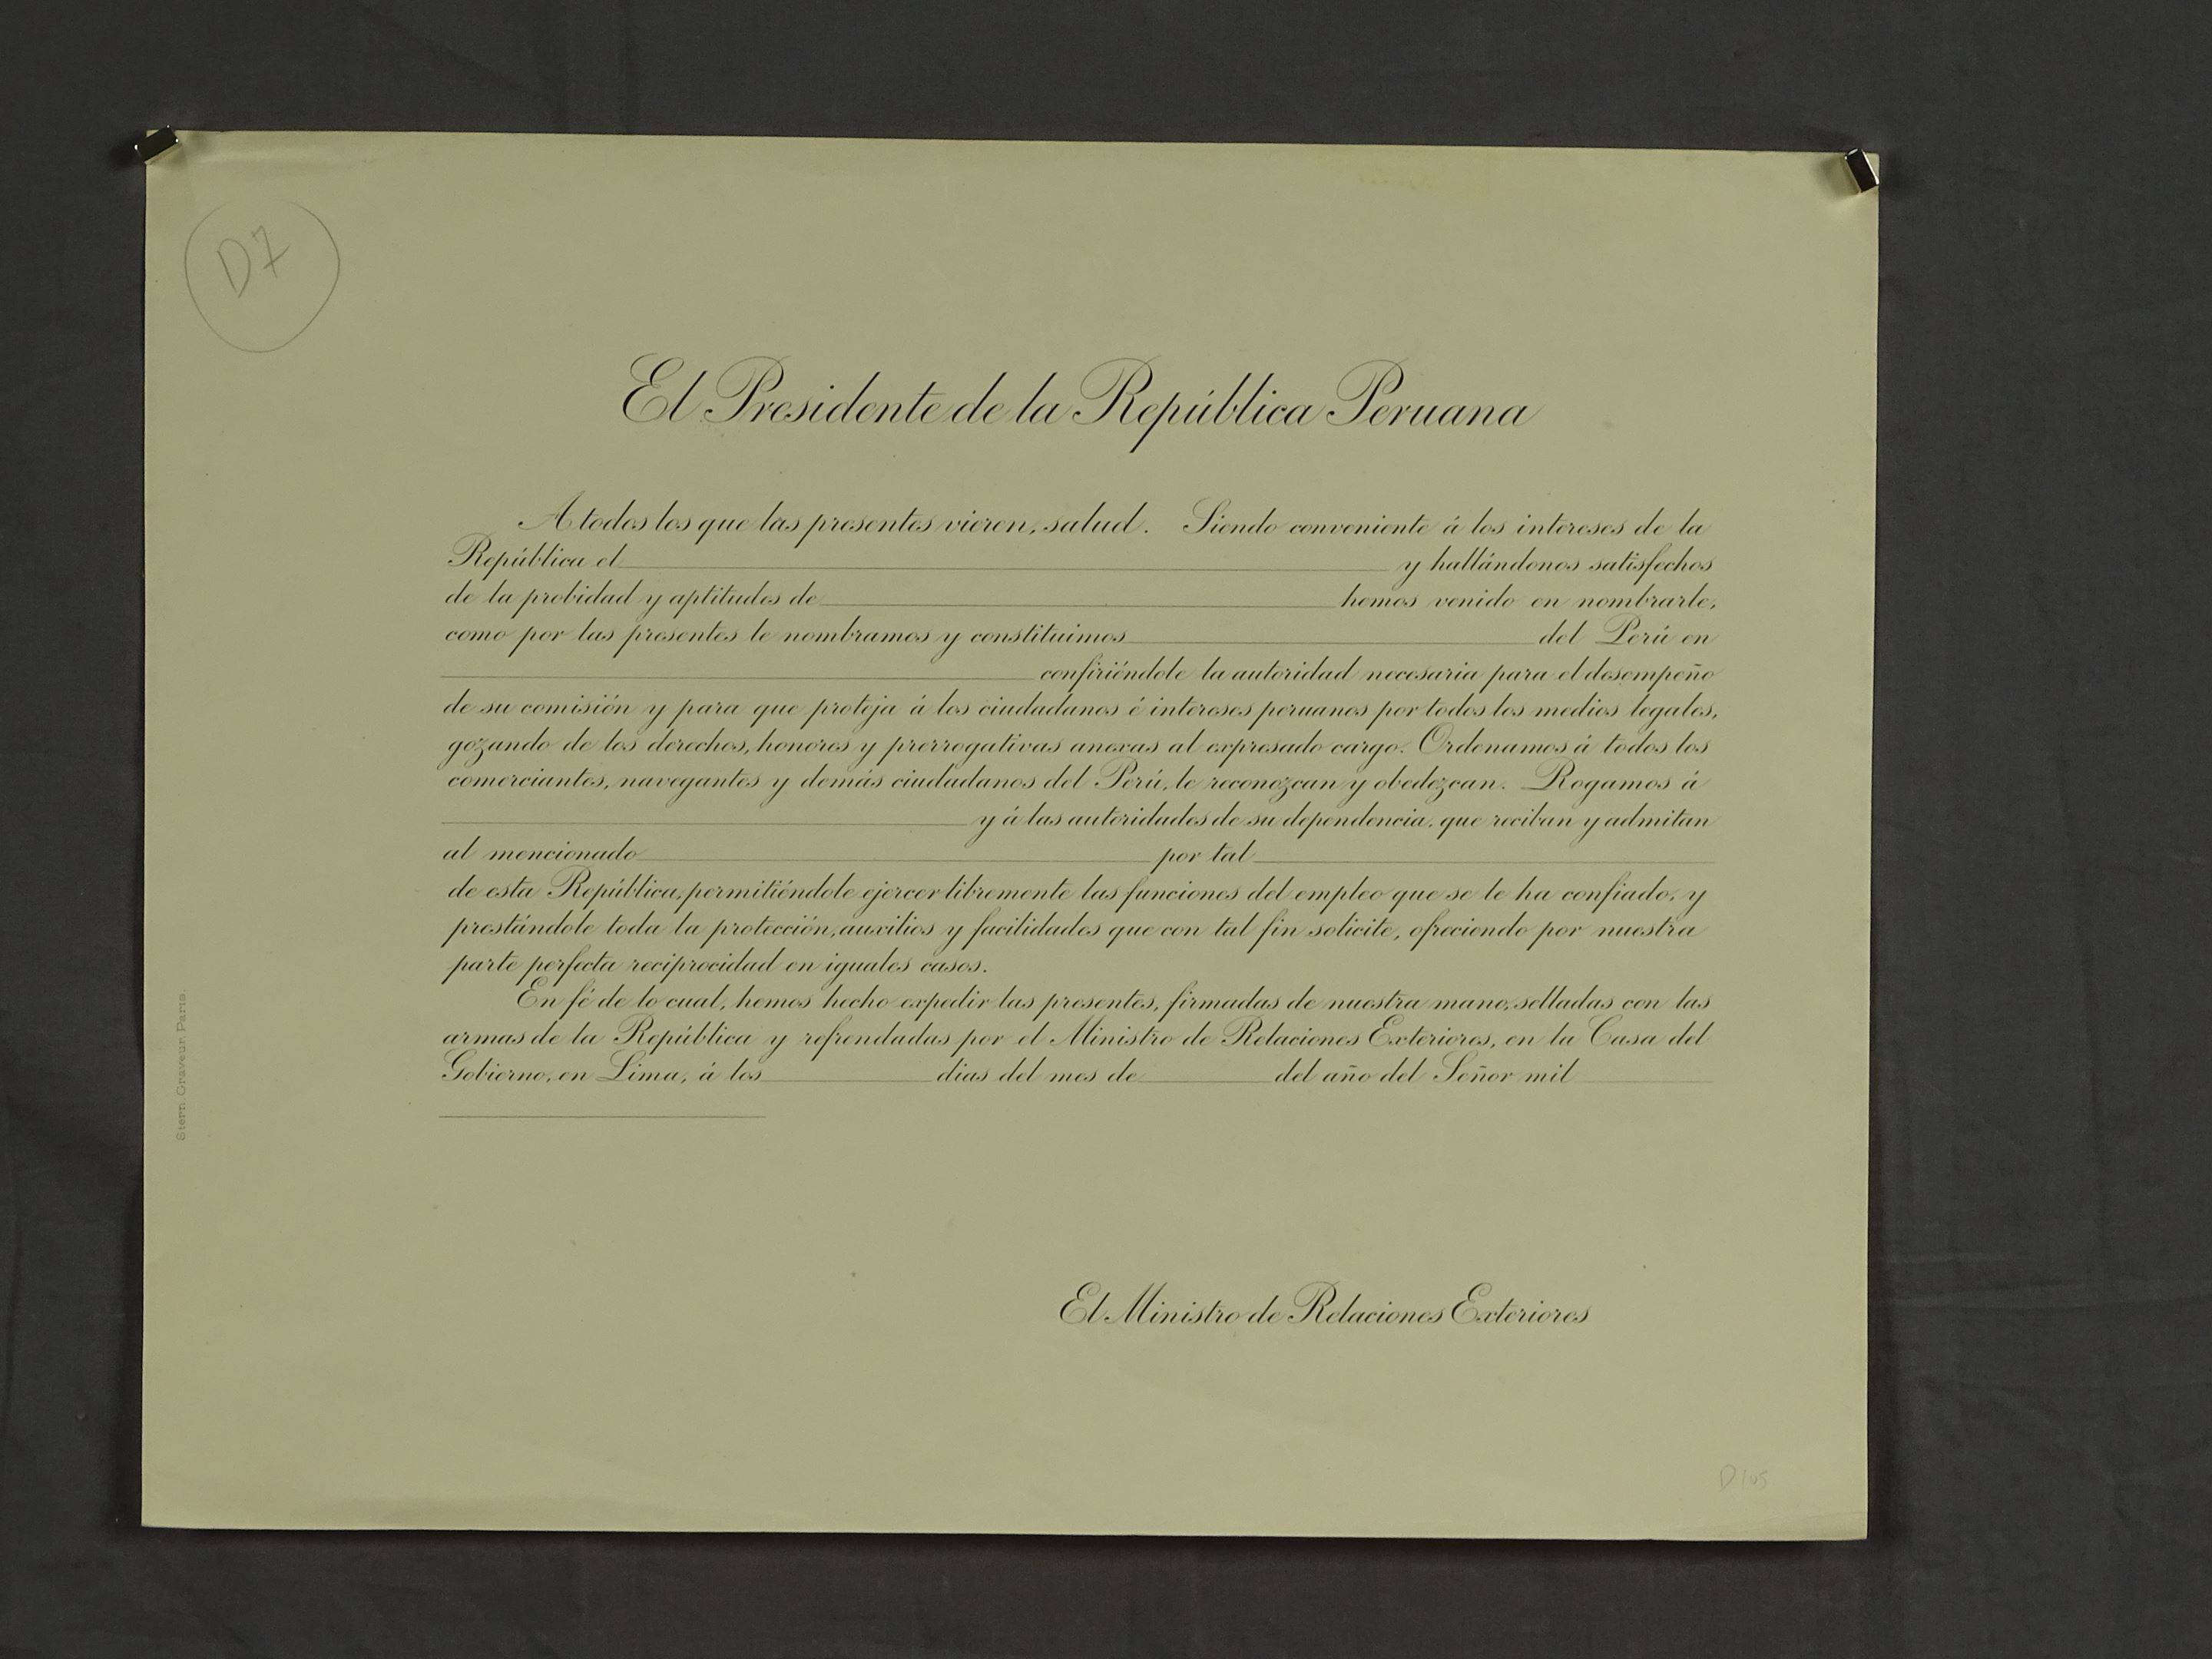 D7
El Presidente de la República Peruana
A todos los que las presentes vieren, salud. Siendo conveniente á los intereses de la
República el y hallándonos satisfechos
de la probidad y aptitudes de hemos venido en nombrarle,
como por las presentes le nombramos y constituimos del Perú en
confiriéndole la autoridad necesaria para el desempeño
de su comisión y para que proteja á los ciudadanos é intereses peruanos por todos los medios legales,
gozando de los derechos, honores y prerrogativas anexas al expresado cargo. Ordenamos á todos los
comerciantes, navegantes y demás ciudadanos del Perú, le reconozcan y obedezcan. Rogamos á
y á las autoridades de su dependencia, que reciban y admitan
al mencionado por tal
de esta República, permitiéndole ejercer libremente las funciones del empleo que se le ha confiado, y
prestándole toda la protección, auxilios y facilidades que con tal fin solicite, ofreciendo por nuestra
parte perfecta reciprocidad en iguales casos.
En fé de lo cual, hemos hecho expedir las presentes, firmadas de nuestra mano, selladas con las
armas de la República y refrendadas por el Ministro de Relaciones Exteriores, en la Casa del
Gobierno, en Lima, á los dias del mes de del año del Señor mil
El Ministro de Relaciones Exteriores
Stern Graveur Paris.